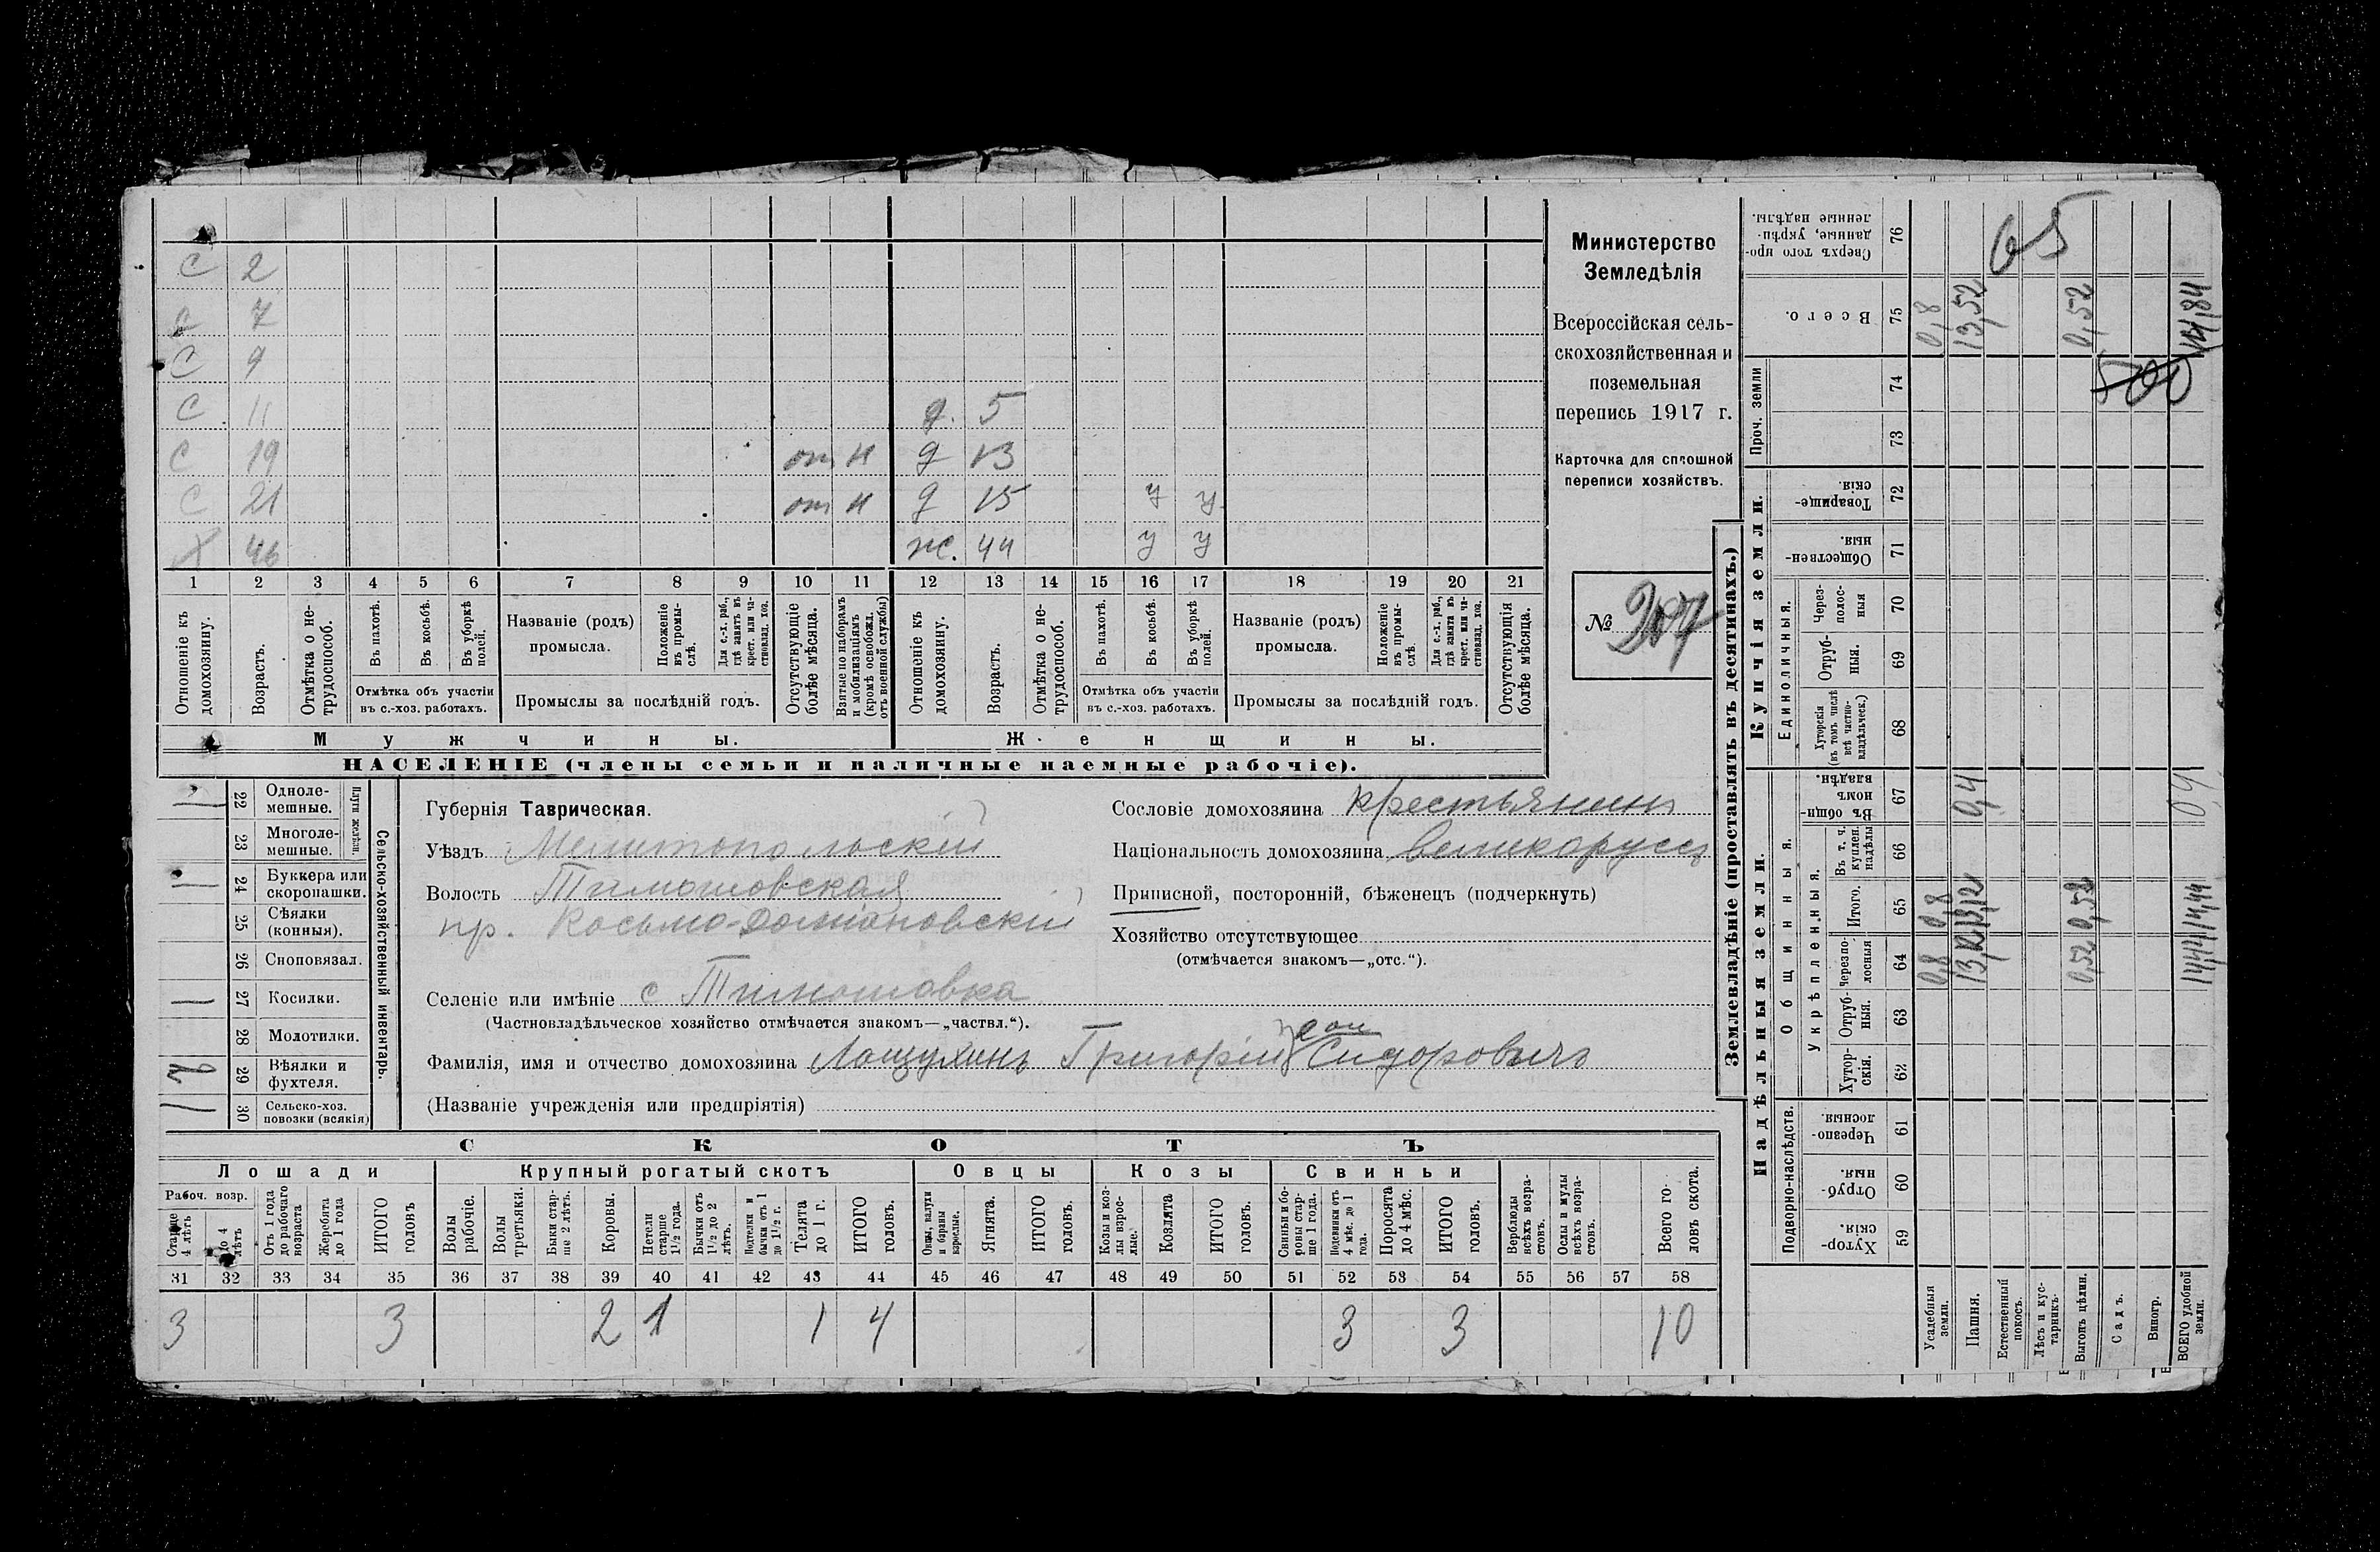 С 2
д 7
С 9
С 11 д. 5
С 19 от н д 13
С 21 от н д 15 у у
Х 46 ж. 44 у у
1 2 3 4 5 6 7 8 9 10 11 12 13 14 15 16 17 18 19 20 21
Отношеніе къ домохозяину.
Возрастъ.
Отмѣтка о не-трудоспособ.
Въ пахотѣ.
Въ косьбѣ.
Въ уборкѣ полей.
Отмѣтка объ участіи въ с.-хоз. работахъ.
Названіе (родъ) промысла.
Положеніе въ промы-слѣ.
Для с.-х. раб., гдѣ занятъ въ крест. или ча-стновлад. хоз.
Промыслы за послѣдній годъ.
Отсутствующіе болѣе мѣсяца.
Взятые по наборамъ и мобилизаціямъ (кромѣ освобожд. отъ военной службы)
Отношеніе къ домохозяину.
Возрастъ.
Отмѣтка о не-трудоспособ.
Въ пахотѣ.
Въ косьбѣ.
Въ уборкѣ полей.
Отмѣтка объ участіи въ с.-хоз. работахъ.
Названіе (родъ) промысла.
Положеніе въ промы-слѣ.
Для с.-х. раб., гдѣ занята въ крест. или ча-стновлад. хоз.
Промыслы за послѣдній годъ.
Отсутствующія болѣе мѣсяца.
Мужчины. Женщины.
НАСЕЛЕНІЕ (члены семьи и наличные наемные рабочіе).
Министерство
Земледѣлія
Всероссійская сель-
скохозяйственная и
поземельная
перепись 1917 г.
Карточка для сплошной
переписи хозяйствъ.
№
22 Одноле-мешные.
23 Многоле-мешные.
Плуги желѣзн.
24 Буккера или скоропашки.
25 Сѣялки (конныя).
26 Сноповязал.
27 Косилки.
28 Молотилки.
29 Вѣялки и фухтеля.
30 Сельско-хоз. повозки (всякія)
Сельско-хозяйственный инвентарь.
Губернія Таврическая.
Уѣздъ Мелитопольскій
Волость Тимошовская
пр. Косьмо-Доміановскій
Селеніе или имѣніе с Тимошовка
(Частновладѣльческое хозяйство отмѣчается знакомъ—„частвл.“).
Фамилія, имя и отчество домохозяина Лощухинъ Григорій Сидоровичъ
(Названіе учрежденія или предпріятія)
Сословіе домохозяина крестьянинъ
Національность домохозяина великорусъ
Приписной, посторонній, бѣженецъ (подчеркнуть)
Хозяйство отсутствующее
(отмѣчается знакомъ—„отс.“).
СКОТЪ
Лошади Крупный рогатый скотъ Овцы Козы Свиньи
Рабоч. возр.
Старше 4 лѣтъ
До 4 лѣтъ
Отъ 1 года до рабочаго возраста
Жеребята до 1 года
ИТОГО головъ
Волы рабочіе.
Волы третьяки.
Быки стар-ше 2 лѣтъ.
Коровы.
Нетели старше 1½ года.
Бычки отъ 1½ до 2 лѣтъ.
Подтелки и бычки отъ 1 до 1½ г.
Телята до 1 г.
ИТОГО головъ.
Овцы, валухи и бараны взрослые.
Ягнята.
ИТОГО головъ.
Козы и коз-лы взрос-лые.
Козлята
ИТОГО головъ.
Свиньи и бо-ровы стар-ше 1 года.
Подсвинки отъ 4 мѣс. до 1 года.
Поросята до 4 мѣс.
ИТОГО головъ.
Верблюды всѣхъ возра-стовъ.
Ослы и мулы всѣхъ возра-стовъ.
Всего го-ловъ скота.
31 32 33 34 35 36 37 38 39 40 41 42 43 44 45 46 47 48 49 50 51 52 53 54 55 56 57 58
3 3 2 1 1 4 3 3 10
Землевладѣніе (проставлять въ десятинахъ.)
Надѣльныя земли. Купчія земли.
Подворно-наслѣдств.
Общинныя.
Укрѣпленныя.
Единоличныя.
Проч. земли
59 Хутор-скія.
60 Отруб-ныя.
61 Черезпо-лосныя.
62 Хутор-скія.
63 Отруб-ныя.
64 Черезпо-лосныя
65 Итого.
66 Въ т. ч. куплен. надѣлы
67 Въ общи-номъ владѣн.
68 Хуторскія (въ томъ числѣ всѣ частно-владѣльческ.)
69 Отруб-ныя.
70 Через-полос-ныя
71 Обществен-ныя.
72 Товарище-скія.
73
74
75 Всего.
76 Сверхъ того про-данные, укрѣп-ленные надѣлы.
Усадебныя земли. 0,8 0,8 0,8
Пашня. 13,12 13,12 0,4 13,52
Естественный покосъ.
Лѣсъ и кус-тарникъ.
Выгонъ цѣлин. 0,52 0,52 0,52
Садъ.
Виногр.
ВСЕГО удобной земли. 14,44 0,4 14,84
65
500